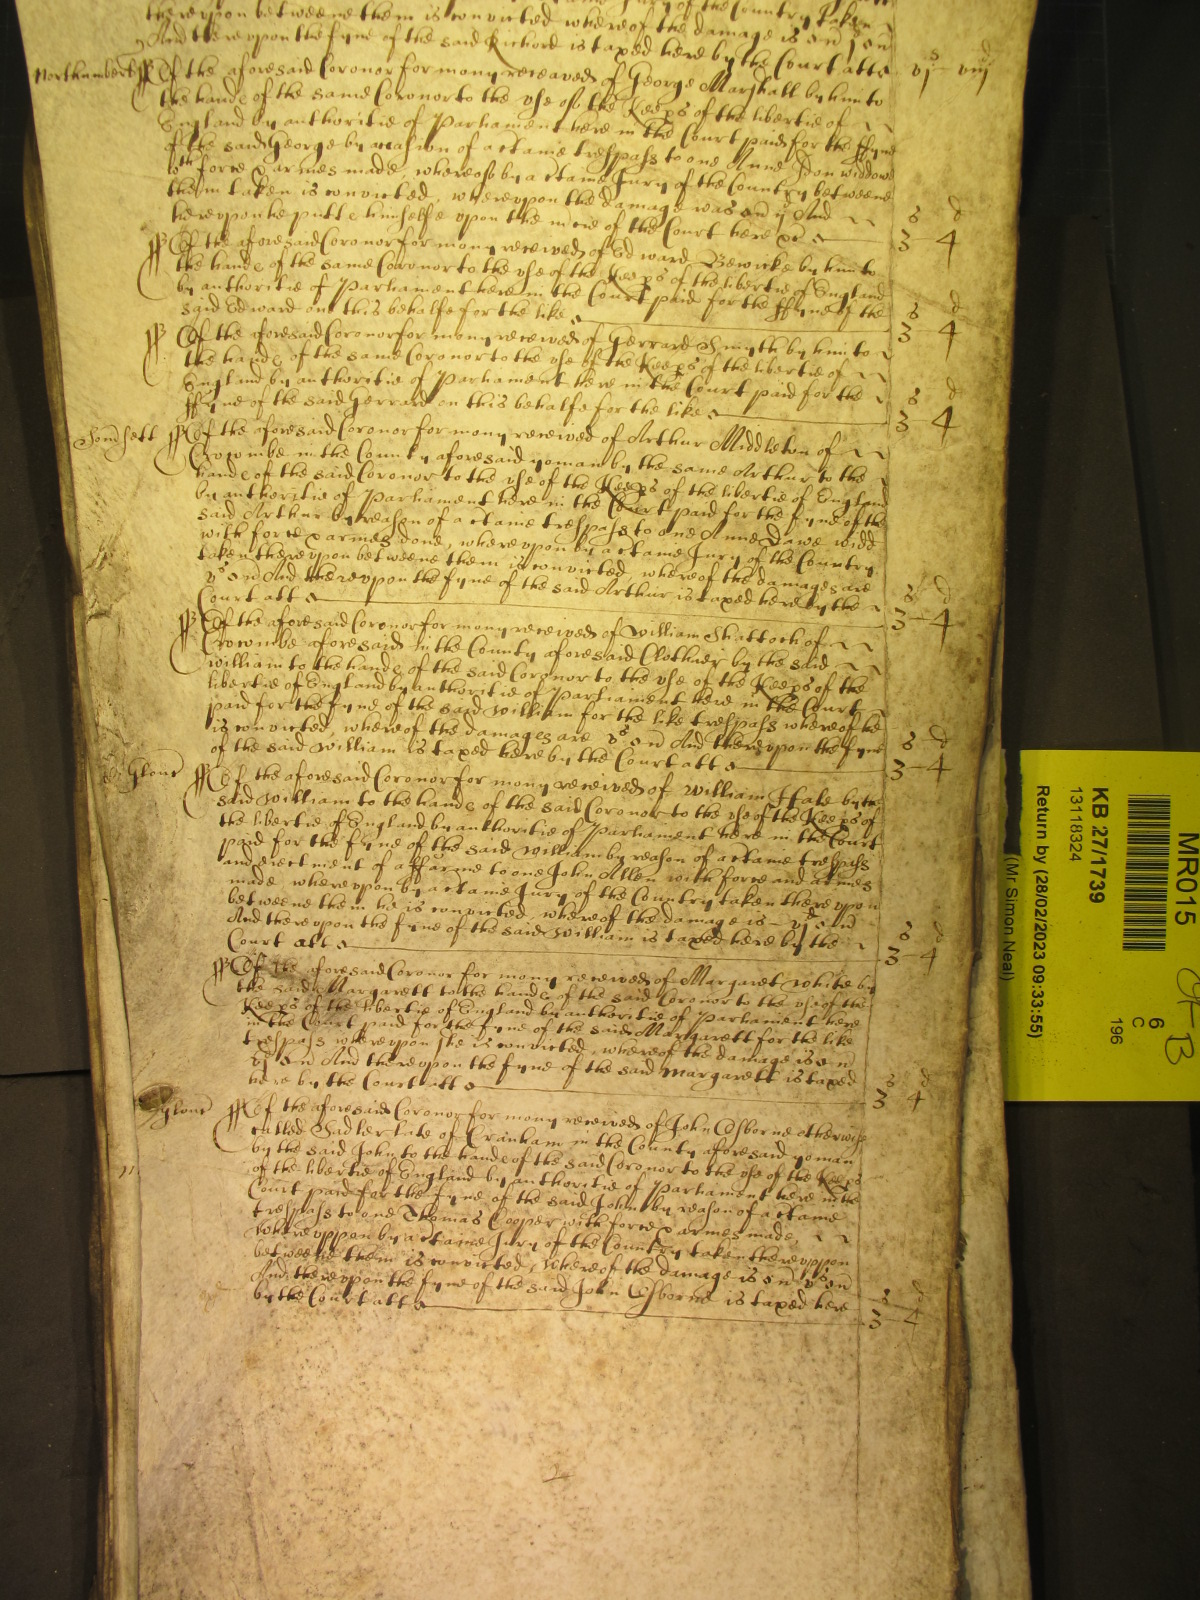 thereupon betweene them is convicted whereof the damage is
And thereupon the fyne of the said Richard is taxed here by the Court att vj s viij d
Northumbert Of the aforesaid Coronor for mony receaved of George Marshall by him to
the hands of the same Coronor to the use of the Keeps of the libertie of
England by authoritie of Parliament here in the Court paid for the ffyne
of the said George by occasion of a ctaine trespass to one Anne widdowe
wth force & armes made, whereof by a ctaine Jury of the Country betweene
them taken is convicted, whereupon the damage was And
hereupon he putte himselfe upon the mcie of the Court here &c s 3 d 4
Of the aforesaid Coronor for mony received of Edward Bewicke by him to
the hands of the same Coronor to the use of the Keeps of the libertie of England
by authoritie of Parliament here in the Court paid for the ffyne of the
said Edward on this behalfe for the like s 3 d 4
Of the aforesaid Coronor for mony received of Gerrard Smyth by him to
the hands of the same Coronor to the use of the Keeps of the libertie of
England by authoritie of Parliament here in the Court paid for the
ffyne of the said Gerrard on this behalfe for the like s 3 d 4
Somsett Of the aforesaid Coronor for mony received of Arthur Middleton of
Crocombe in the County aforesaid yoman by the same Arthur to the
hands of the said Coronor to the use of the Keeps of the libertie of England
by authoritie of Parliament here in the Court paid for the fyne of the
said Arthur by reason of a ctaine trespass to one Anne Dawe widd
with force & armes done, whereupon by a ctaine Jury of the Country
taken thereupon betweene them is convicted, whereof the damages are
And thereupon the fyne of the said Arthur is taxed here by the
Court att s 3 d 4
Of the aforesaid Coronor for mony received of William Shattock of
Crocombe aforesaid in the County aforesaid Clothier by the said
William to the hands of the said Coronor to the use of the Keeps of the
libertie of England by authoritie of Parliament here in the Court
paid for the fyne of the said William for the like trespass whereof he
is convicted, whereof the damages are And thereupon the fyne
of the said William is taxed here by the Court att s 3 d 4
Glouc Of the aforesaid Coronor for mony received of William by the
said William to the hands of the said Coronor to the use of the Keeps of
the libertie of England by authoritie of Parliament here in the Court
paid for the fyne of the said William by reason of a ctaine trespass
and eiectment of a ffarme to one John Allen with force and armes
made, whereupon by a ctaine Jury of the Country taken thereupon
betweene them he is convicted, whereof the damage is
And thereupon the fyne of the said William is taxed here by the
Court att s 3 d 4
Of the aforesaid Coronor for mony received of Margarett White by
the said Margarett to the hands of the said Coronor to the use of the
Keeps of the libertie of England by authoritie of Parliament here
in the Court paid for the fyne of the said Margarett for the like
trespass whereupon she is convicted, whereof the damage is
And thereupon the fyne of the said Margarett is taxed
here by the Court att s 3 d 4
Glouc Of the aforesaid Coronor for mony received of John Osborne otherwise
called Sadler late of Cranham in the County aforesaid yoman
by the said John to the hands of the said Coronor to the use of the Keeps
of the libertie of England by authoritie of Parliament here in the
Court paid for the fyne of the said John by reason of a ctaine
trespass to one Thomas Cooper with force & armes made,
Whereuppon by a ctaine Jury of the Country taken thereuppon
betweene them is convicted, Whereof the damage is
And thereupon the fyne of the said John Osborne is taxed here
by the Court att s 3 d 4
MR015
KB 27/1739
13118324
Return by (28/02/2023 09:33:55)
(Mr Simon Neal)
6
C
196